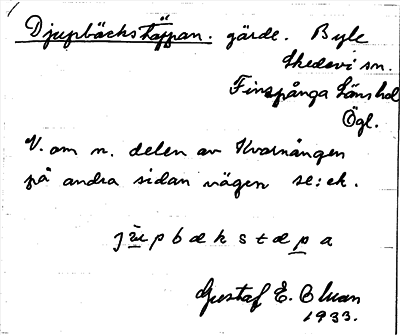 Djupbäckstäppan. gärde. Byle
Skedevi sn.
Finspånga läns hd
Ögl.
V. om n. delen av Kvarnängen
på andra sidan vägen se: ek.
jʉpbækstæpa
Gustaf E. Bluan
1933.